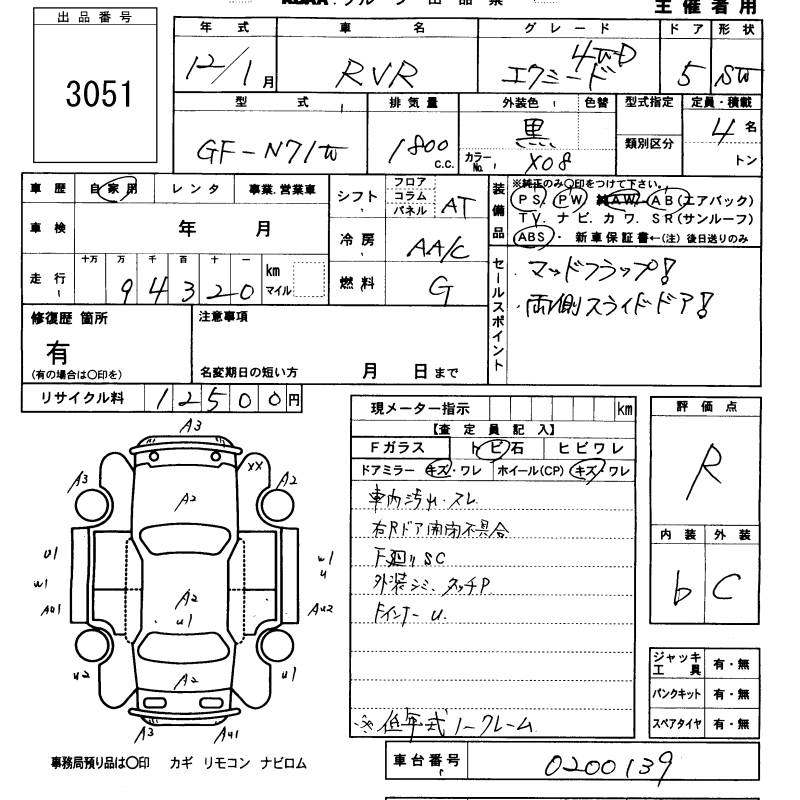 出品番号
3051
主催者用
年式 車名 グレード ドア 形状
12/1月 RVR エクシード 4WD 5 SW
型式 排気量 外装色 色替 型式指定 定員・積載
GF-N71W 1800 c.c. 黒 類別区分 4名
カラーNo. X08 トン
車歴 自家用 レンタ 事業.営業車
車検 年 月
走行 十万 万 千 百 十 一 km マイル
94320
シフト フロア コラム パネル AT
冷房 AA/C
燃料 G
装備品
※純正のみ○印をつけて下さい。
PS. PW. 純AW. AB(エアバック)
TV. ナビ. カワ. SR(サンルーフ)
ABS・ 新車保証書←(注)後日送りのみ
セールスポイント
・マッドフラップ!
・両側スライドドア!
修復歴 箇所
有
(有の場合は○印を)
注意事項
名変期日の短い方 月 日まで
リサイクル料 12500円
現メーター指示 km
【査定員記入】
Fガラス トビ石 ヒビワレ
ドアミラー キズ・ワレ ホイール(CP) キズ・ワレ
車内汚れ・スレ
右Rドア開閉不具合
下廻りSC
外装シミ、タッチP
FインナーU.
※低年式ノークレーム
評価点
R
内装 外装
b C
ジャッキ 工具 有・無
パンクキット 有・無
スペアタイヤ 有・無
A3
A3 XX A2
A2
U1 W1 AU1
W1 U AU2
A2
U1
U2 A2 U1
A3 AU1
事務局預り品は○印 カギ リモコン ナビロム
車台番号 0200139